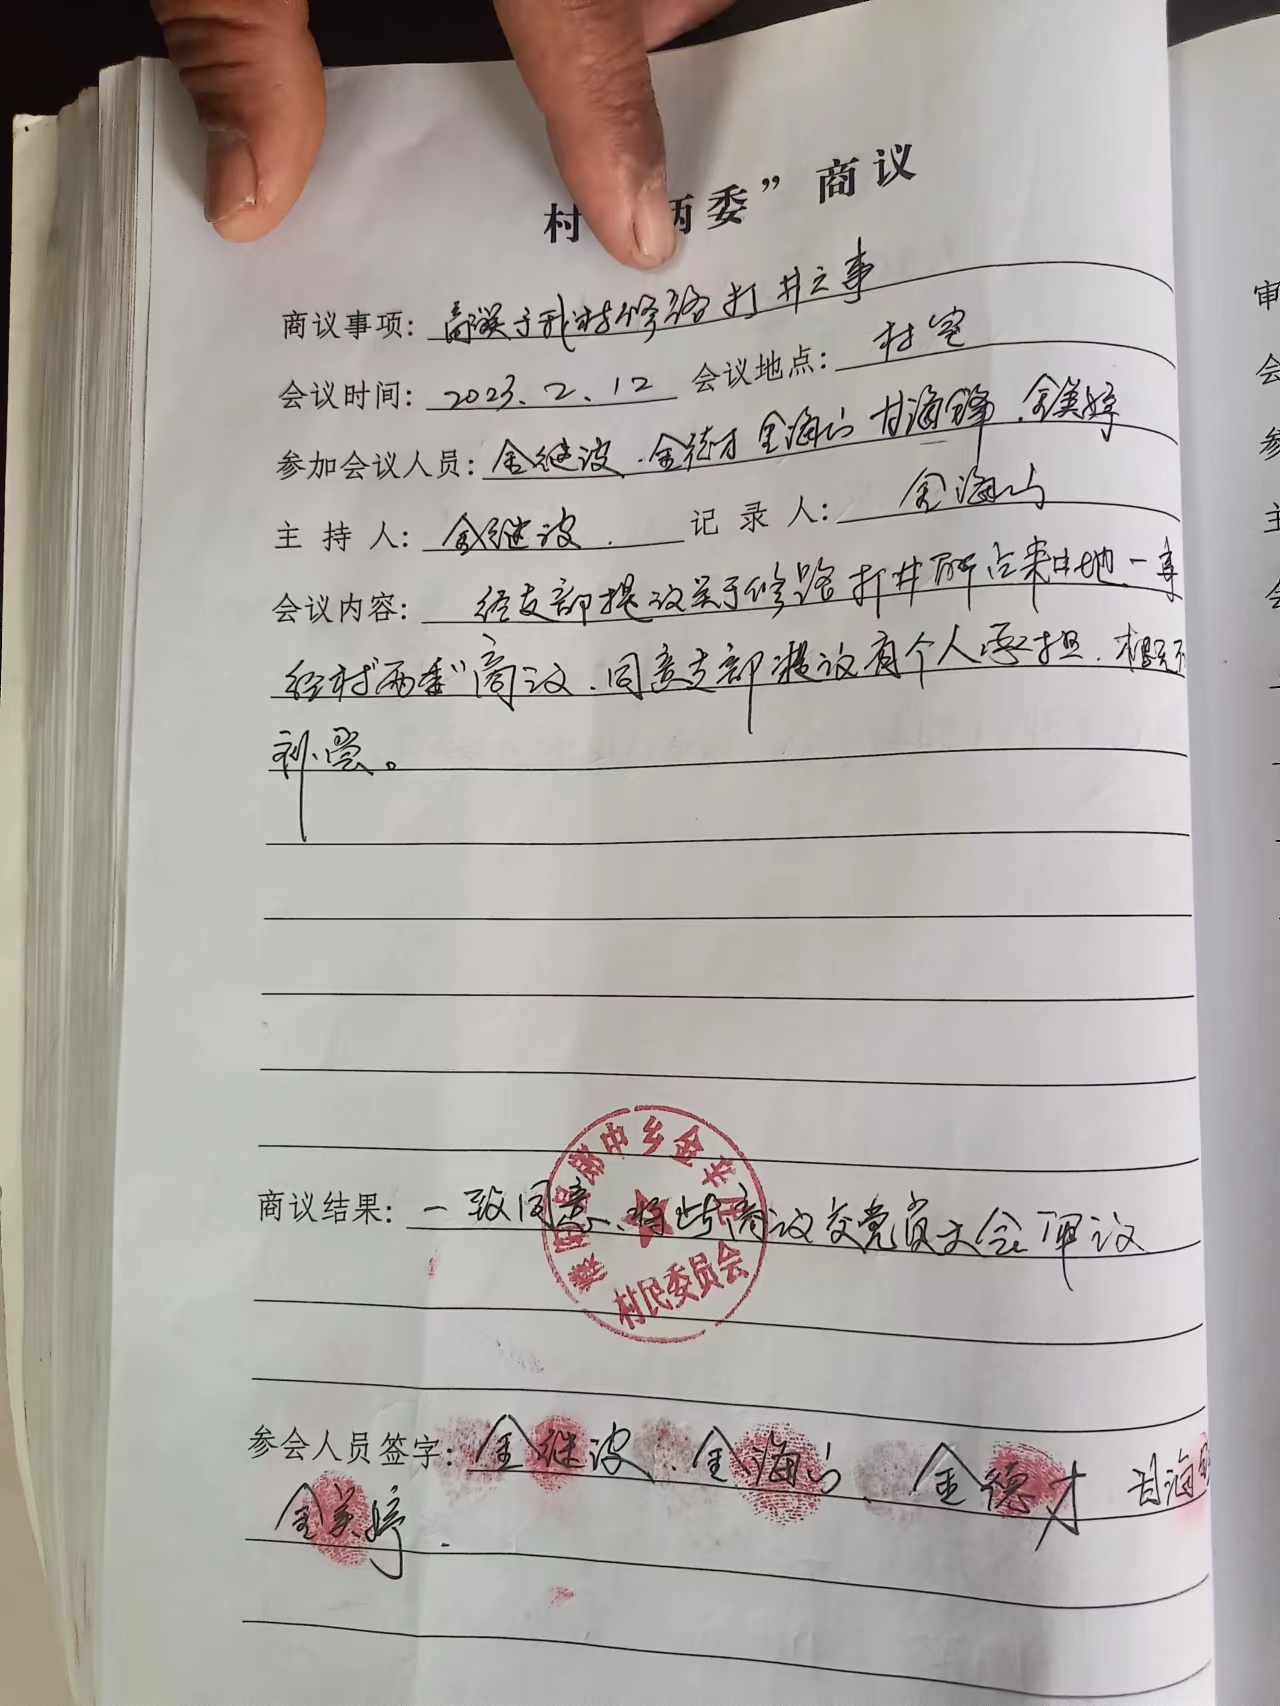 村 两委”商议
商议事项：商议关于我村修路打井之事
会议时间：2023.2.12 会议地点：村室
参加会议人员：金继波.金德才 金海山 甘海锋.金美婷
主 持 人：金继波. 记 录 人：金海山
会议内容：经支部提议关于修路打井所占耕地一事
经村“两委”商议.同意支部提议有个人承担.村
补偿。
郎中乡金
村民委员会
商议结果：一致同意、将此商议交党员大会审议
参会人员签字：金继波.金海山、金德才 甘海
金美婷.
审
会
参
主
会